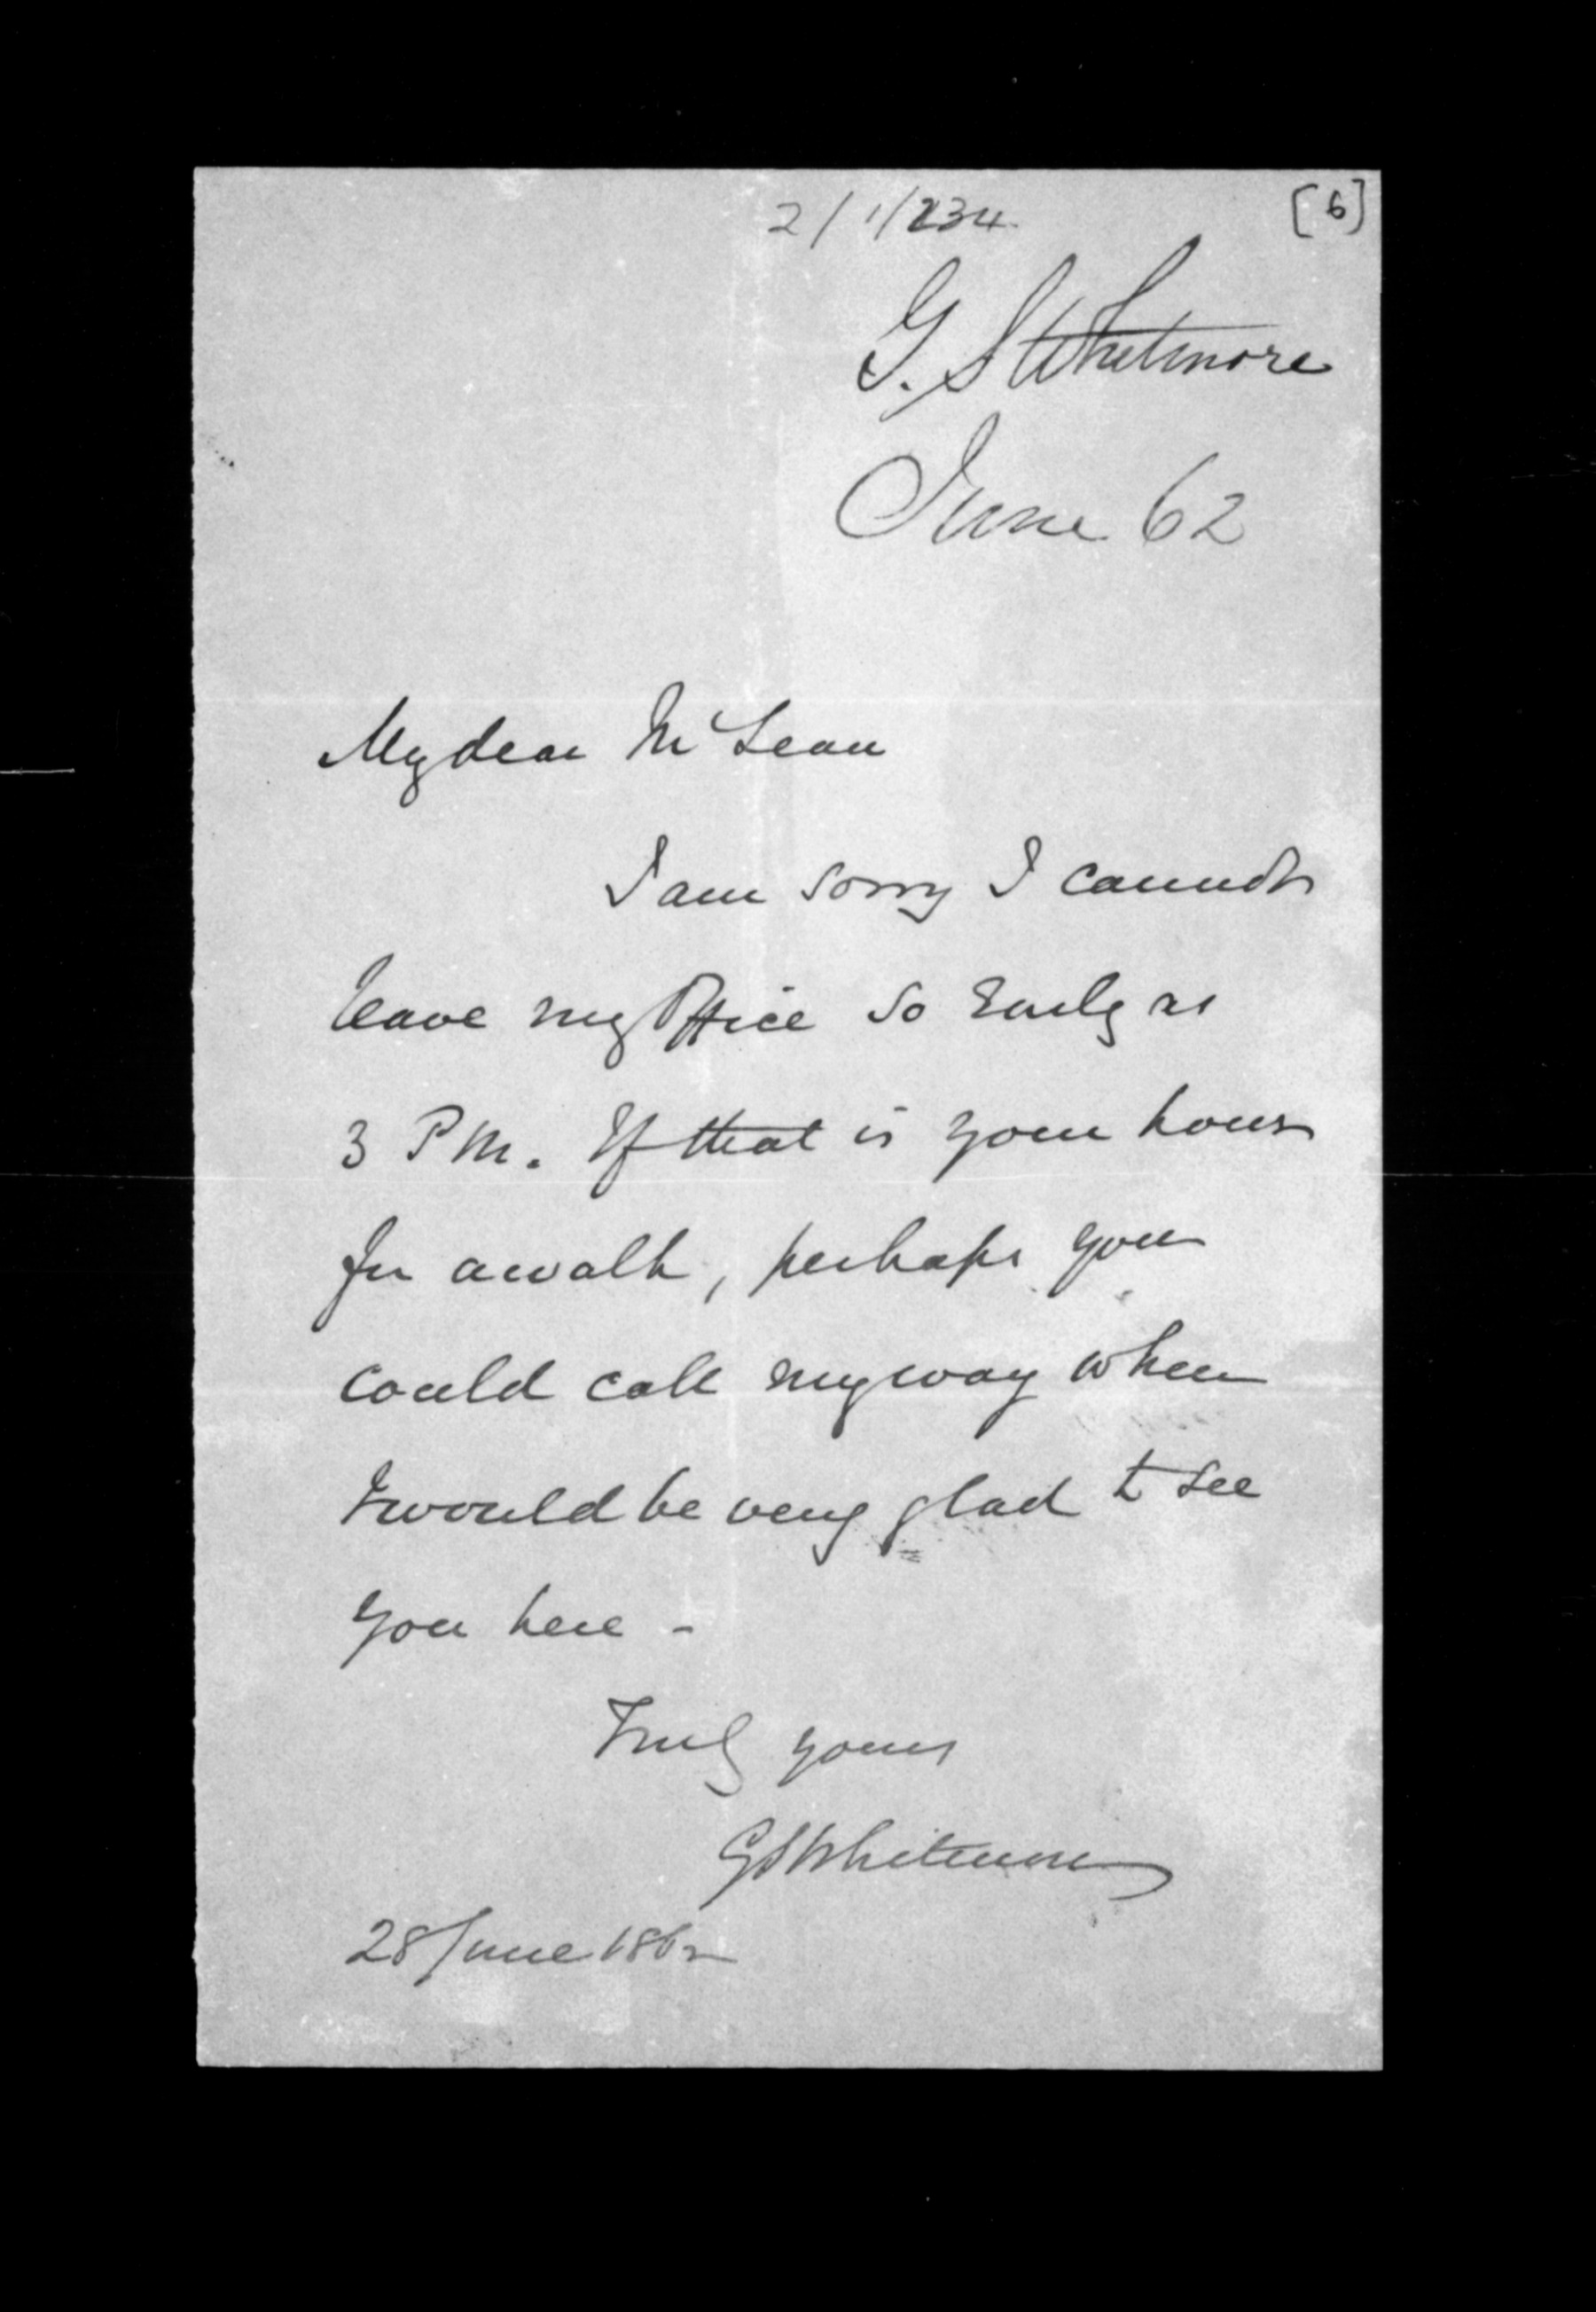 2/1/234
[6]
G. S Whitmore
June 62
My dear McLean
I am sorry I cannot
leave my Office so Early as
3 PM. If that is your hour
for a walk, perhaps you
could call my way when
I would be very glad to see
you here -
Truly yours
GSWhitmore
28 June 1862